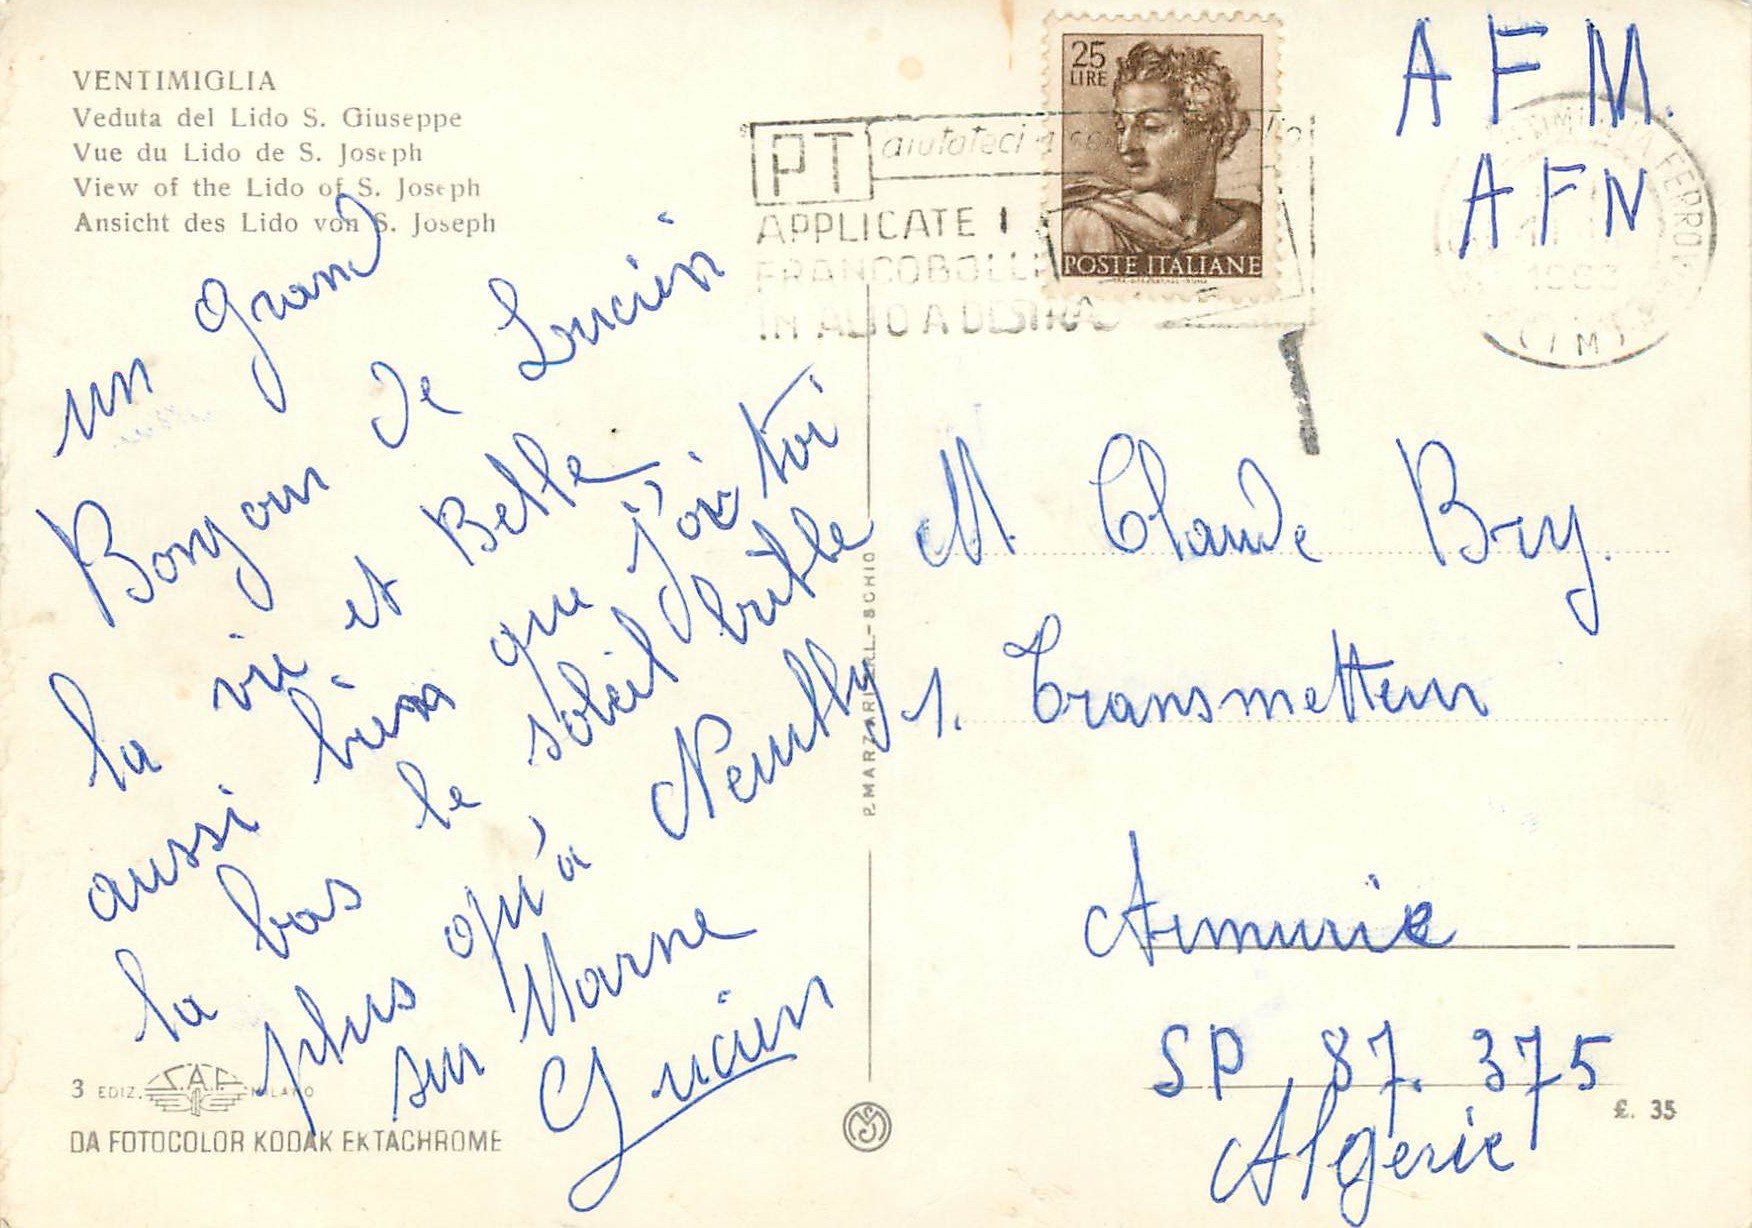 VENTIMIGLIA
Veduta del Lido S. Giuseppe
Vue du Lido de S. Joseph
View of the Lido of S. Joseph
Ansicht des Lido von S. Joseph
un grand
Bonjour de Lucien
la vie et Belle
aussi bien que j'oi toi
la bas le soleil brille
plus qu'a Neuilly
sur Marne
Lucien
3 EDIZ. S.A.F. MILANO
DA FOTOCOLOR KODAK EKTACHROME
P. MARZARI S.R.L. - SCHIO
25
LIRE
POSTE ITALIANE
PT aiutateci a
APPLICATE I
FRANCOBOLLI
IN ALTO A DESTRA
VENTIMIGLIA FERROVIA
(IM)
A F M.
A F N
M Claude Bry.
1. Transmetteur
Armurie
SP 87. 375
Algerie
£. 35